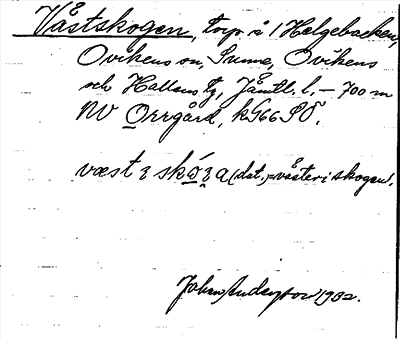 Våstskogen, torp å 1 Helgebacken,
Ovikens sn, Sunne, Ovikens
och Hallens tg, Jämtl. l. – 700 m
NV Orrgård, k 966 SO.
væst ɛ skóga (dat.) = väster i skogen'.
Johan Anderson 1932.